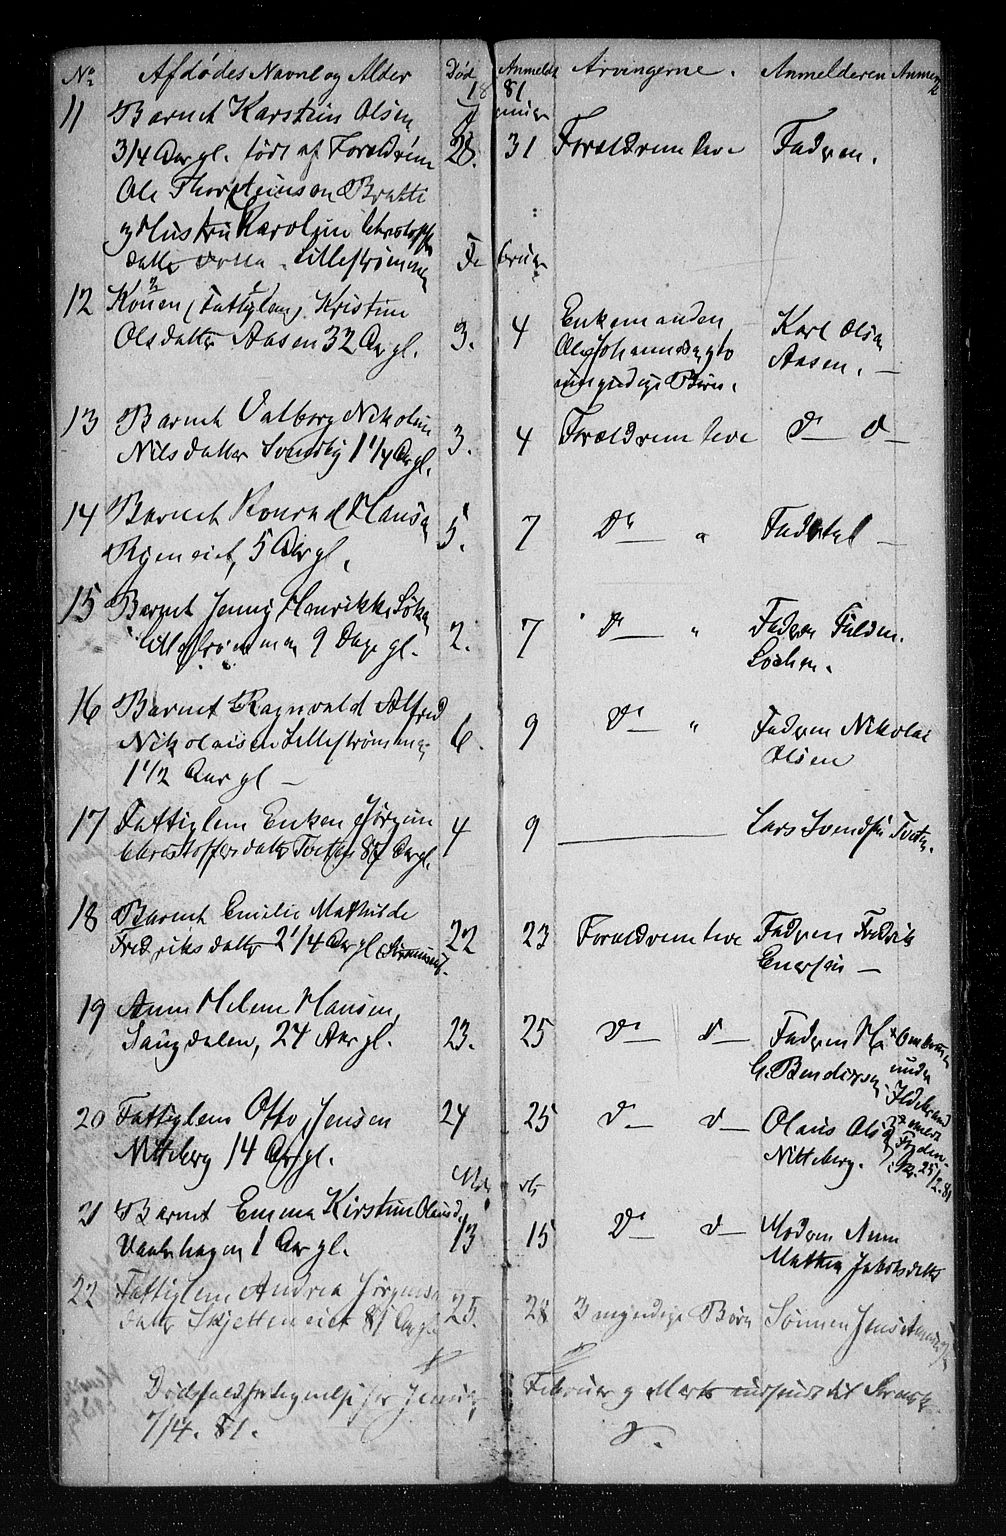 No Afdødes Navne og Alder Død Anmeldt Arvingerne. Anmelderen Anmerk
1881
Januar
11 Barnet Karstine Olsen
3/4 Aar gl. født af Forældrene 28. 31 Forældrene leve Faderen.
Ole Thorsteinsen Bratli
og Hustru Karoline Christoffer
datter Lillestrømmen
Februar
12 Konen (Fattiglem) Kristine
Olsdatter Aasen 32 Aar gl. 3. 4 Enkemanden Karl Olsen
Ole Johannesen, to Aasen. —
umyndige Børn.
13 Barnet Valborg Nikoline
Nilsdatter Svendby 1 1/4 Aar gl. 3. 4 Forældrene leve Do — Do —
14 Barnet Konrad Hansen
5 Aar gl. 5. 7 Do — " —
15 Barnet Jenny Henrikke
Lillestrømmen 9 Dage gl. 2. 7 Do — " Faderen
16 Barnet Ragnvald Alfred
Nikolaisen Lillestrømmen 6. 9 Do — " Faderen Nikolai
1 1/2 Aar gl — Olsen
17 Fattiglem Enken Jørgine
Christoffersdatter 87 Aar gl. 4 9 Lars Svendsen
18 Barnet Emilie Mathilde
Fredriksdatter 2 1/4 Aar gl 22 23 Forældrene leve Faderen Fredrik
Enersen —
19 Anne Helene Hansen,
24 Aar gl. 23. 25 Do — Do — Faderen H.
G. Bendixsen
20 Fattiglem Otto Jensen 24 25 Do — Do — Olaus
Nitteberg 14 Aar gl. Nitteberg.
25/2.81
Marts
21 Barnet Emma Kirstine Olausd.
1 Aar gl. 13 15 Do — Do — Moderen Anne
Mathea Jakobsdatter
22 Fattiglem Andrea Jørgens
datter Skjetteneiet 81 Aar gl 25. 28 3 myndige Børn Sønnen Jens
Dødsfaldsfortegnelse for Januar, Februar og Marts
7/4. 81.